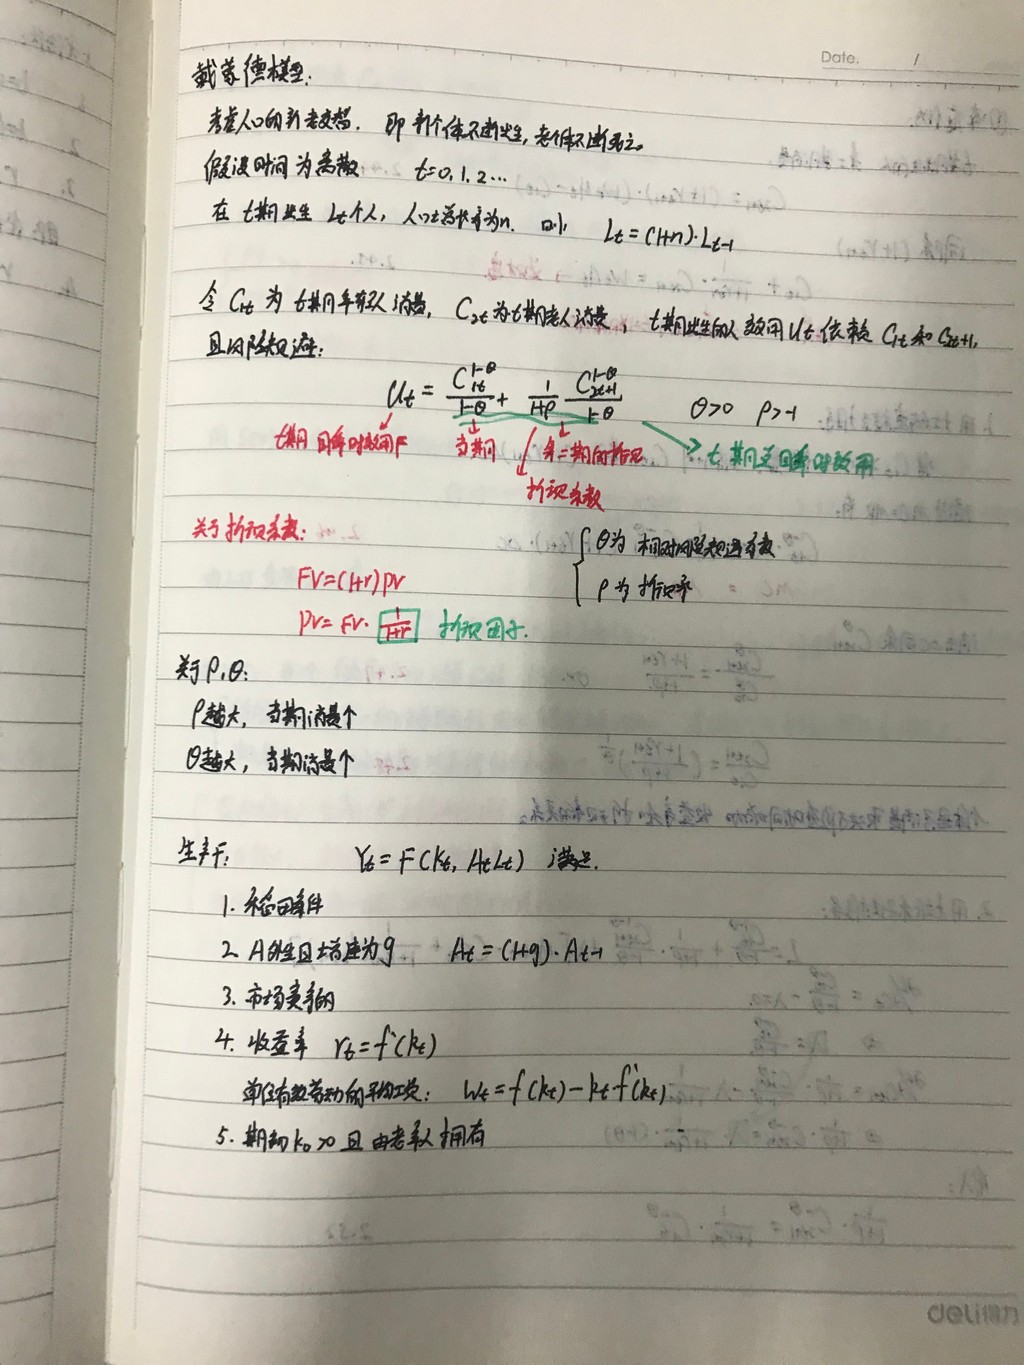 Date. /
戴蒙德模型:
考虑人口的新老交替. 即新个体不断出生,老个体不断死亡。
假设时间为离散 t=0,1,2…
在t期出生Lt个人, 人口增长率为n. 则 Lt=(1+n)·Lt-1
令C1t为t期年轻人消费, C2t为t期老人消费, t期出生的人效用Ut依赖C1t和C2t+1,
且风险规避:
Ut = C1t^(1-θ)/(1-θ) + 1/(1+ρ) C2t+1^(1-θ)/(1-θ) θ>0 ρ>-1
当期 第二期的折现 t期总回率时效用
折现系数
关于折现系数:
θ为相对风险规避系数
FV=(1+r)PV
ρ为折现率
PV=FV·1/(1+r) 折现因子.
关于ρ,θ:
ρ越大, 当期消费↑
θ越大, 当期消费↑
生产: Yt=F(Kt, AtLt) 满足.
1. 稻田条件
2. A外生且增速为g At=(1+g)·At-1
3. 市场竞争的
4. 收益率 rt=f'(kt)
单位有效劳动的平均工资: Wt=f(kt)-kt·f'(kt)
5. 期初k0>0且由老年人拥有
deli得力